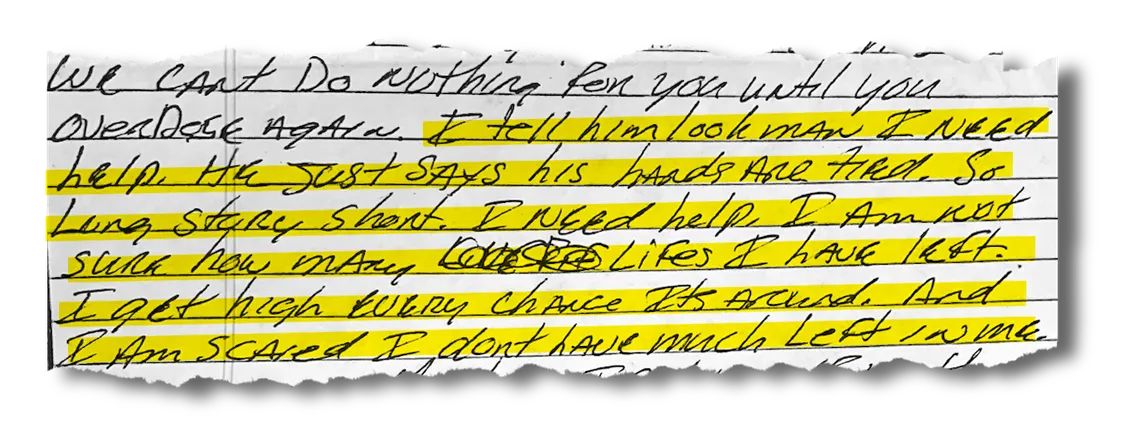 We cant Do nothing for you until you
overDose Again. I tell him look man I need
help. He Just SAys his hands Are tied. So
Long story short. I need help. I Am not
sure how many Lifes I have left.
I get high every chance Its around. And
I Am Scared I dont have much Left in me.